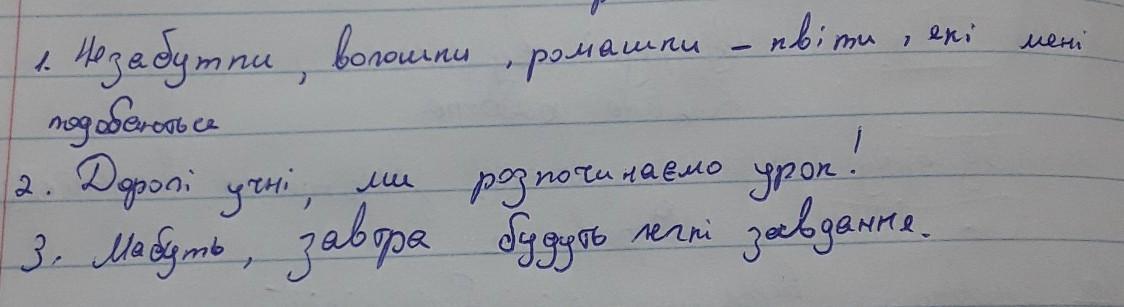 1. Незабутки, волошки, ромашки – квіти, які мені
подобаються
2. Дорогі учні, ми розпочинаємо урок!
3. Мабуть, завтра будуть легкі завдання.